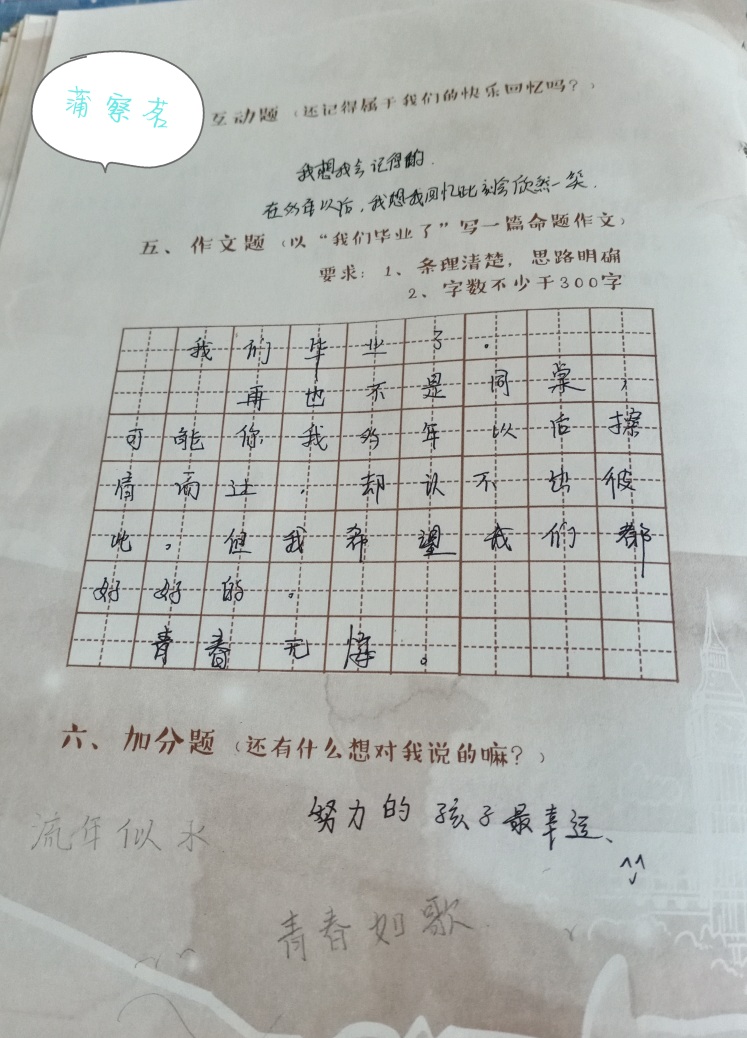 蒲察茗
互动题（还记得属于我们的快乐回忆吗？）
我想我会记得的.
在多年以后，我想我回忆此刻会欣然一笑.
五、作文题（以“我们毕业了”写一篇命题作文）
要求：1、条理清楚，思路明确
2、字数不少于300字
我们毕业了。
再也不是同桌，
可能你我多年以后擦
情而过，却认不出彼
此，但我希望我们都
好好的。
青春无悔。
六、加分题（还有什么想对我说的嘛？）
努力的孩子最幸运、
流年似水
青春如歌